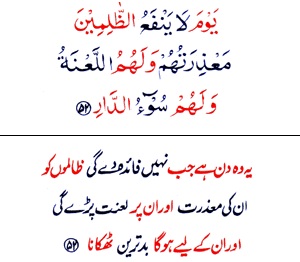 يَوْمَ لَا يَنْفَعُ الظّٰلِمِيْنَ
مَعْذِرَتُهُمْ وَلَهُمُ اللَّعْنَةُ
وَلَهُمْ سُوْٓءُ الدَّارِ ﴿۵۲﴾
یہ وہ دن ہے جب نہیں فائدہ دے گی ظالموں کو
ان کی معذرت اور ان پر لعنت پڑے گی
اور ان کے لیے ہوگا بدترین ٹھکانا ﴿۵۲﴾